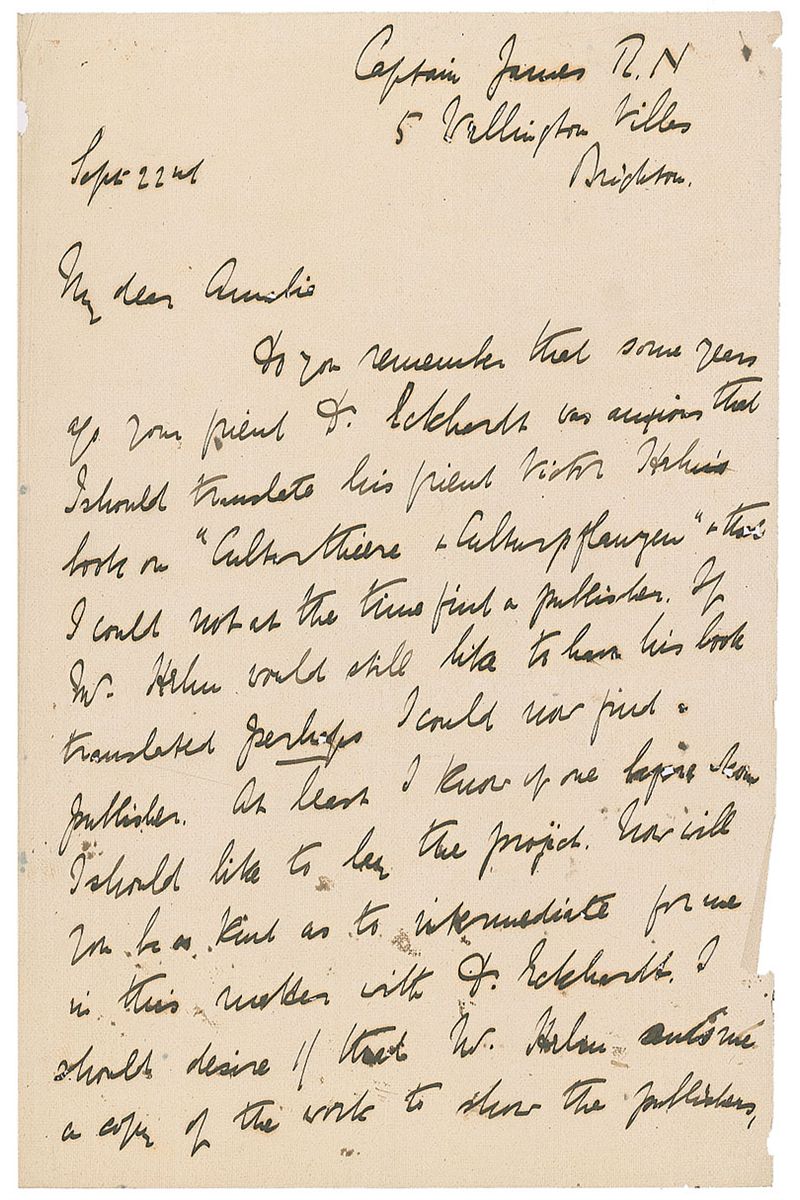 Captain James R.N
5 Wellington Villas
Brighton.
Sept 22nd
My dear Amelie
Do you remember that some years
ago your friend Dr. Eckhardt was anxious that
I should translate his friend Victor Hehn's
book on "Culturthiere & Culturpflanzen" & that
I could not at the time find a publisher. If
Mr. Hehn would still like to have his book
translated perhaps I could now find a
publisher. At least I know of one before whom
I should like to lay the project. Now will
you be so kind as to intermediate for me
in this matter with Dr. Eckhardt. I
should desire 1/ that Mr. Hehn send me
a copy of the work to show the publishers,